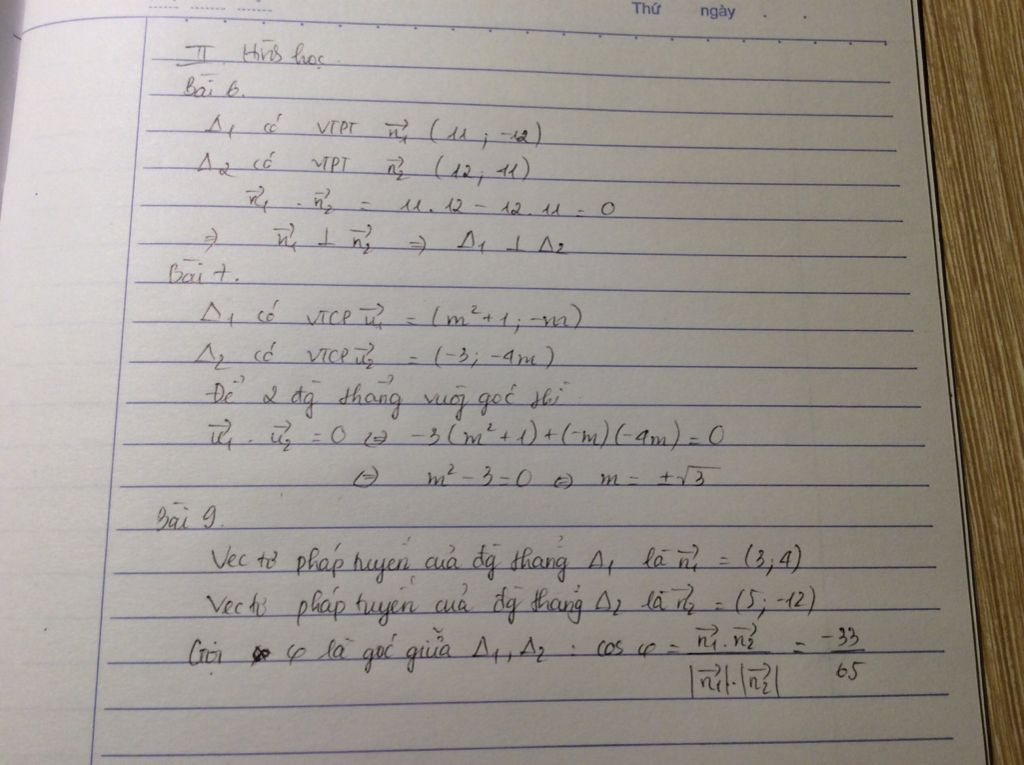 Thứ ngày
II Hình học.
Bài 6.
Δ1 có VTPT n⃗1 (11; -12)
Δ2 có VTPT n⃗2 (12; 11)
n⃗1 . n⃗2 = 11.12 - 12.11 = 0
⇒ n⃗1 ⊥ n⃗2 ⇒ Δ1 ⊥ Δ2
Bài 7.
Δ1 có VTCP u⃗1 = (m²+1; -m)
Δ2 có VTCP u⃗2 = (-3; -4m)
Để 2 đg thẳng vuông góc thì
u⃗1 . u⃗2 = 0 ⇔ -3(m²+1)+(-m)(-4m) = 0
⇔ m² - 3 = 0 ⇔ m = ±√3
Bài 9.
Vec tơ pháp tuyến của đg thẳng Δ1 là n⃗1 = (3; 4)
Vec tơ pháp tuyến của đg thẳng Δ2 là n⃗2 = (5; -12)
Gọi φ là góc giữa Δ1, Δ2 : cos φ = n⃗1 . n⃗2 / |n⃗1|.|n⃗2| = -33/65